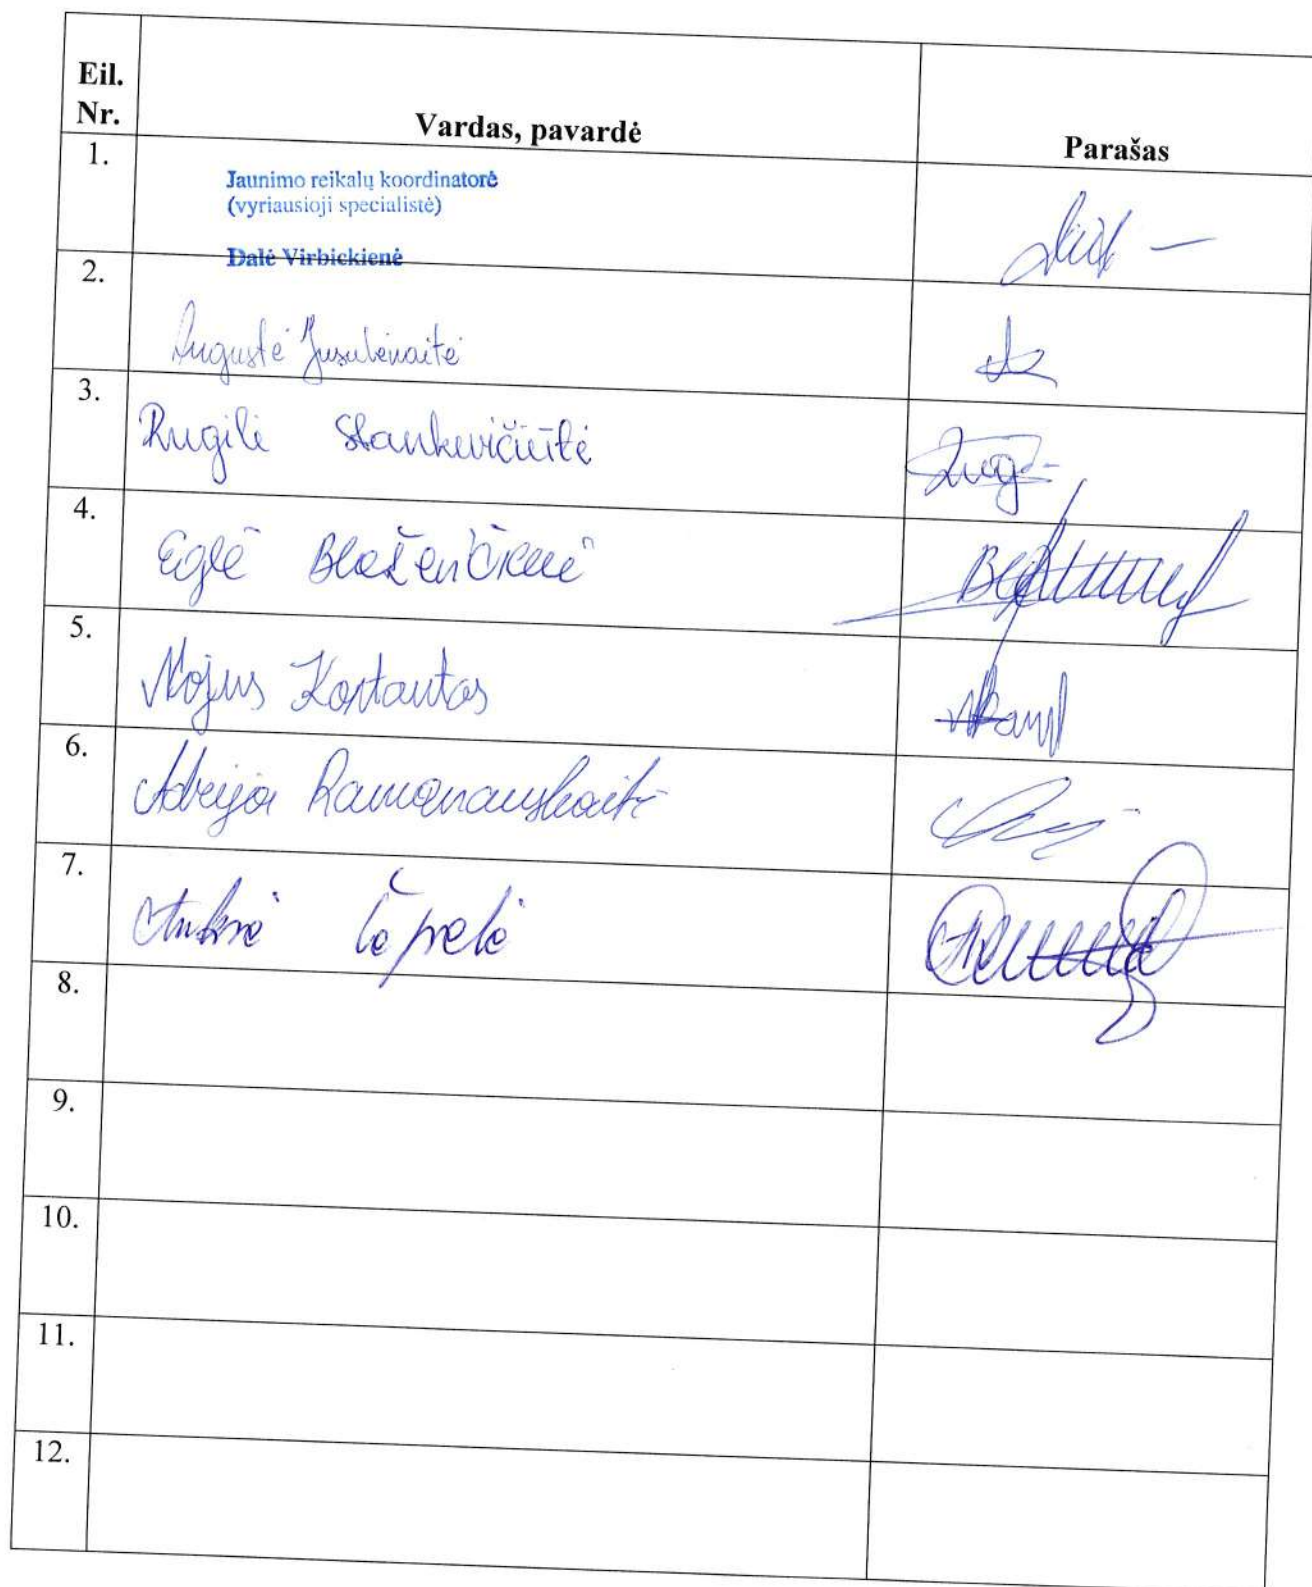 Eil.
Nr.
Vardas, pavardė
Parašas
1.
Jaunimo reikalų koordinatorė
(vyriausioji specialistė)
Dalė Virbickienė
2.
Augustė
3.
Rugilė Stankevičiūtė
4.
Eglė Blaženčienė
5.
Nojus Kontautas
6.
Adrija Ramanauskaitė
7.
Čeprelė
8.
9.
10.
11.
12.